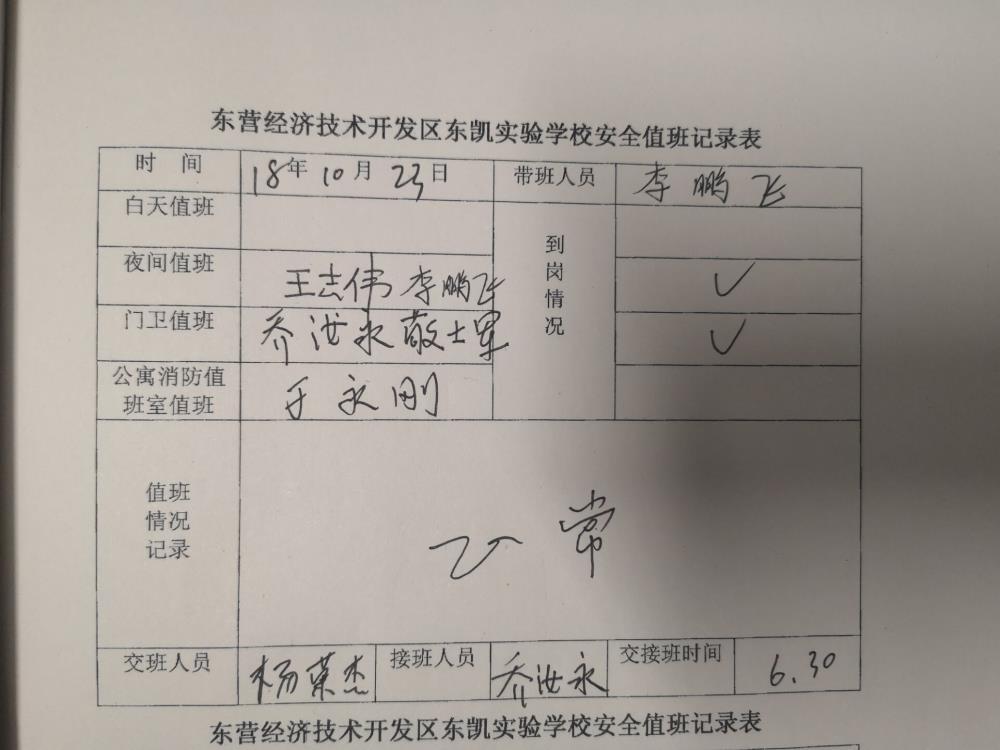 东营经济技术开发区东凯实验学校安全值班记录表
时 间 18年 10月 23日 带班人员 李鹏飞
白天值班
到岗情况
夜间值班 王志伟 李鹏飞 ✓
门卫值班 乔汝永 敬士军 ✓
公寓消防值
班室值班 于永刚
值班
情况
记录
正常
交班人员 杨荣杰 接班人员 乔汝永 交接班时间 6.30
东营经济技术开发区东凯实验学校安全值班记录表